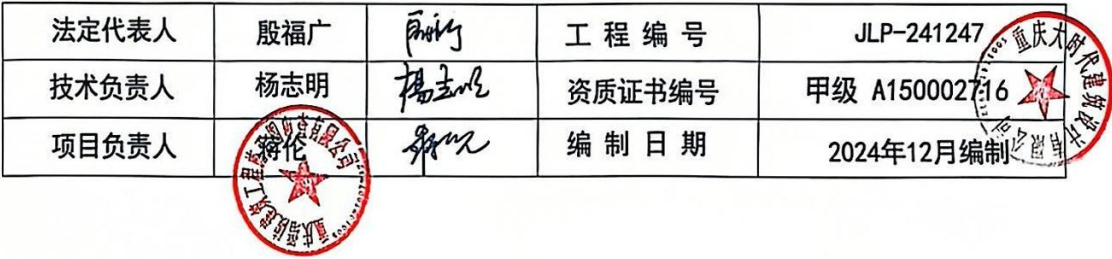 法定代表人 殷福广 工程编号 JLP-241247
技术负责人 杨志明 杨志明 资质证书编号 甲级 A150002716
项目负责人 伦 编制日期 2024年12月编制
重庆大时代建筑设计有限公司